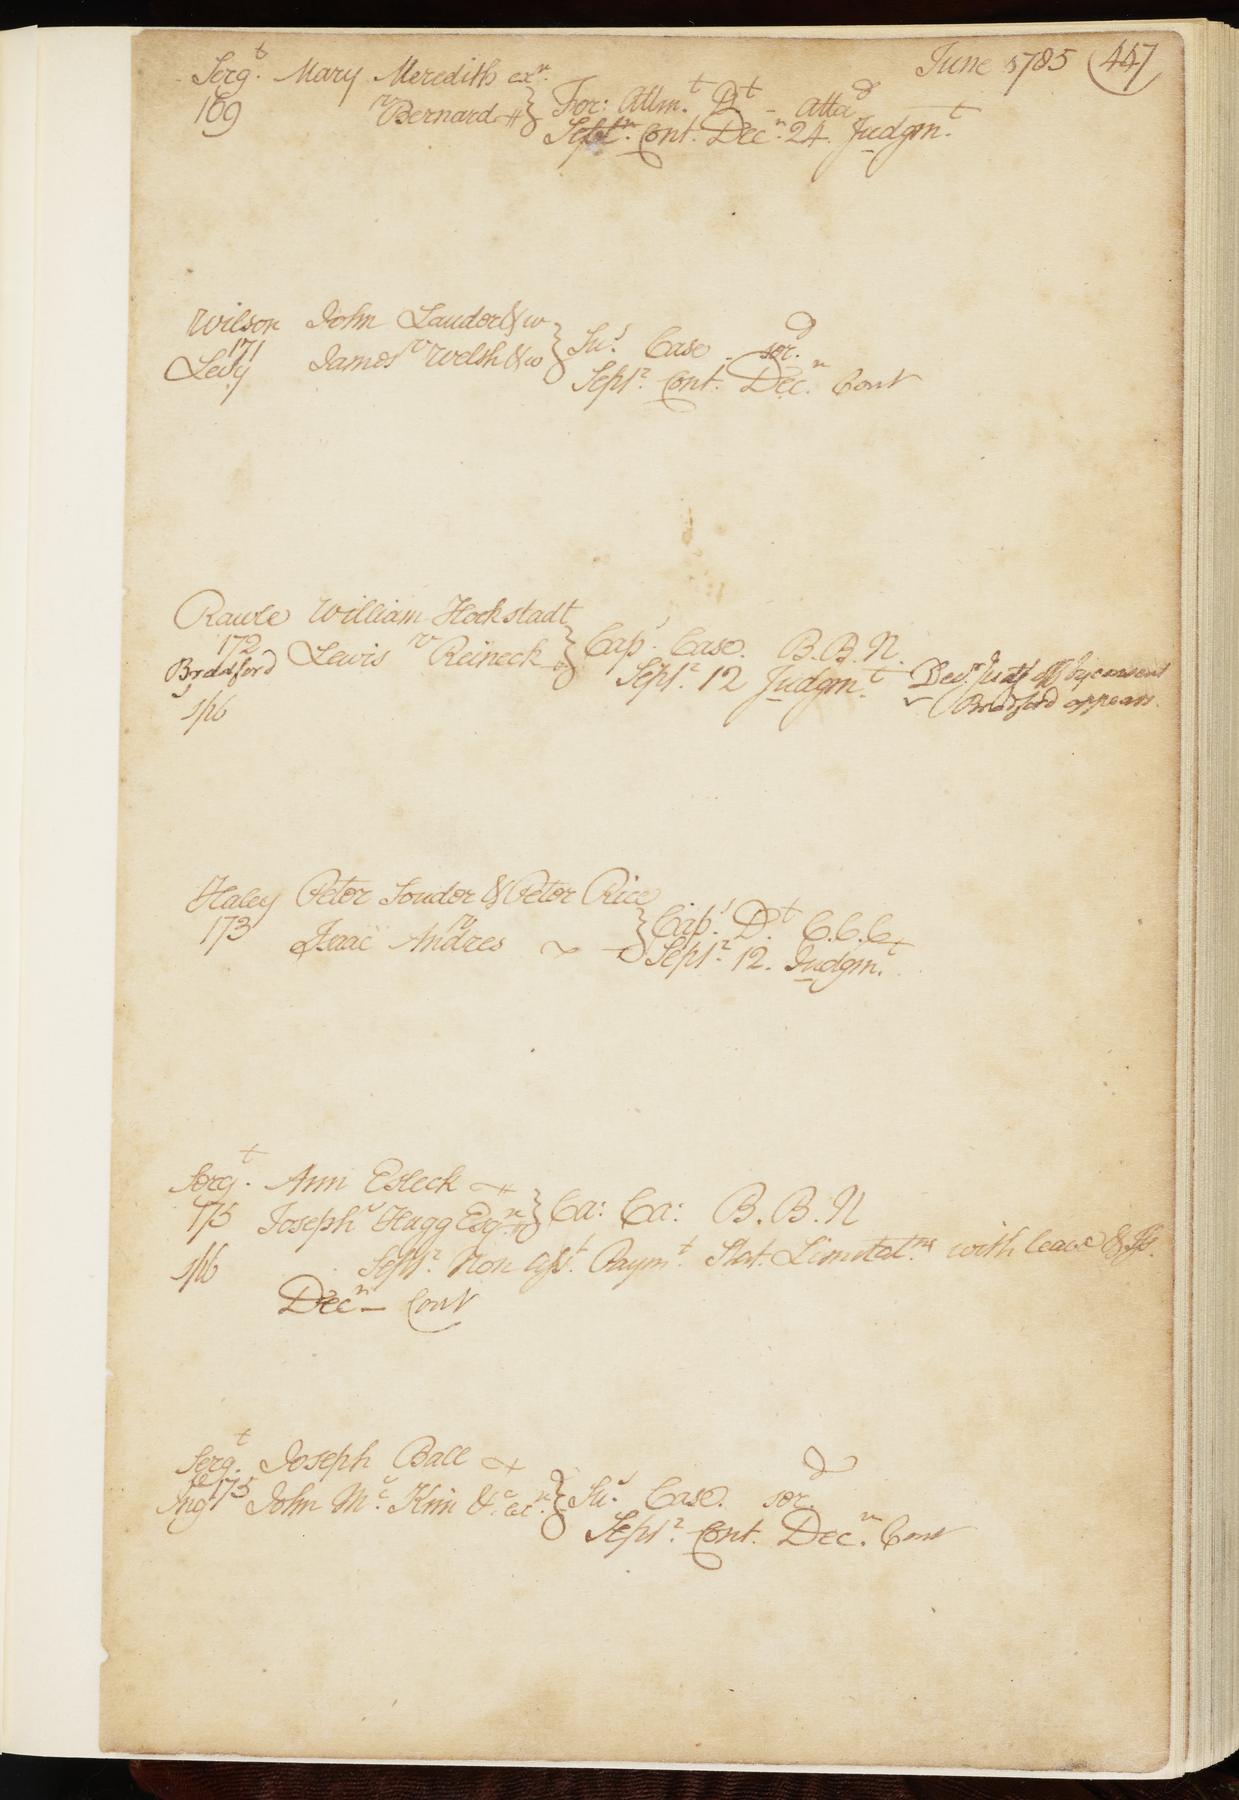 June 1785 447
Serg.t Mary Meredith ex.n
169 v Bernard } For: Attm.t D.t - atta.d
Sept.r Cont. Dec.r 24. Judgm.t
Wilson John Lauder & w
171 v } Su.s Case - ser.d
Levy James Welsh & w
Sept.r Cont. Dec.r Cont
Rawle William Hockstadt
172 v } Cap.s Case. B.B.N.
Bradford Lewis Reineck
Sept.r 12 Judgm.t by consent
1/6 Bradford appears.
Haley Peter Souder & Peter Rice
173 v } Cap.s D.t C.C.C.
Isaac Andres
Sept.r 12. Judgm.t
Serg.t Ann Esleck
175 Joseph v Hugg Esq.r } Ca: Ca: B.B.N
1/6 Sept.r Non Ass.t Paym.t Stat. Limitat.ns with leave &
Dec.r - Cont
Serg.t Joseph Ball
Ing 175 John M.c Kim &.c } Su.s Case. ser.d
Sept.r Cont. Dec.r Cont